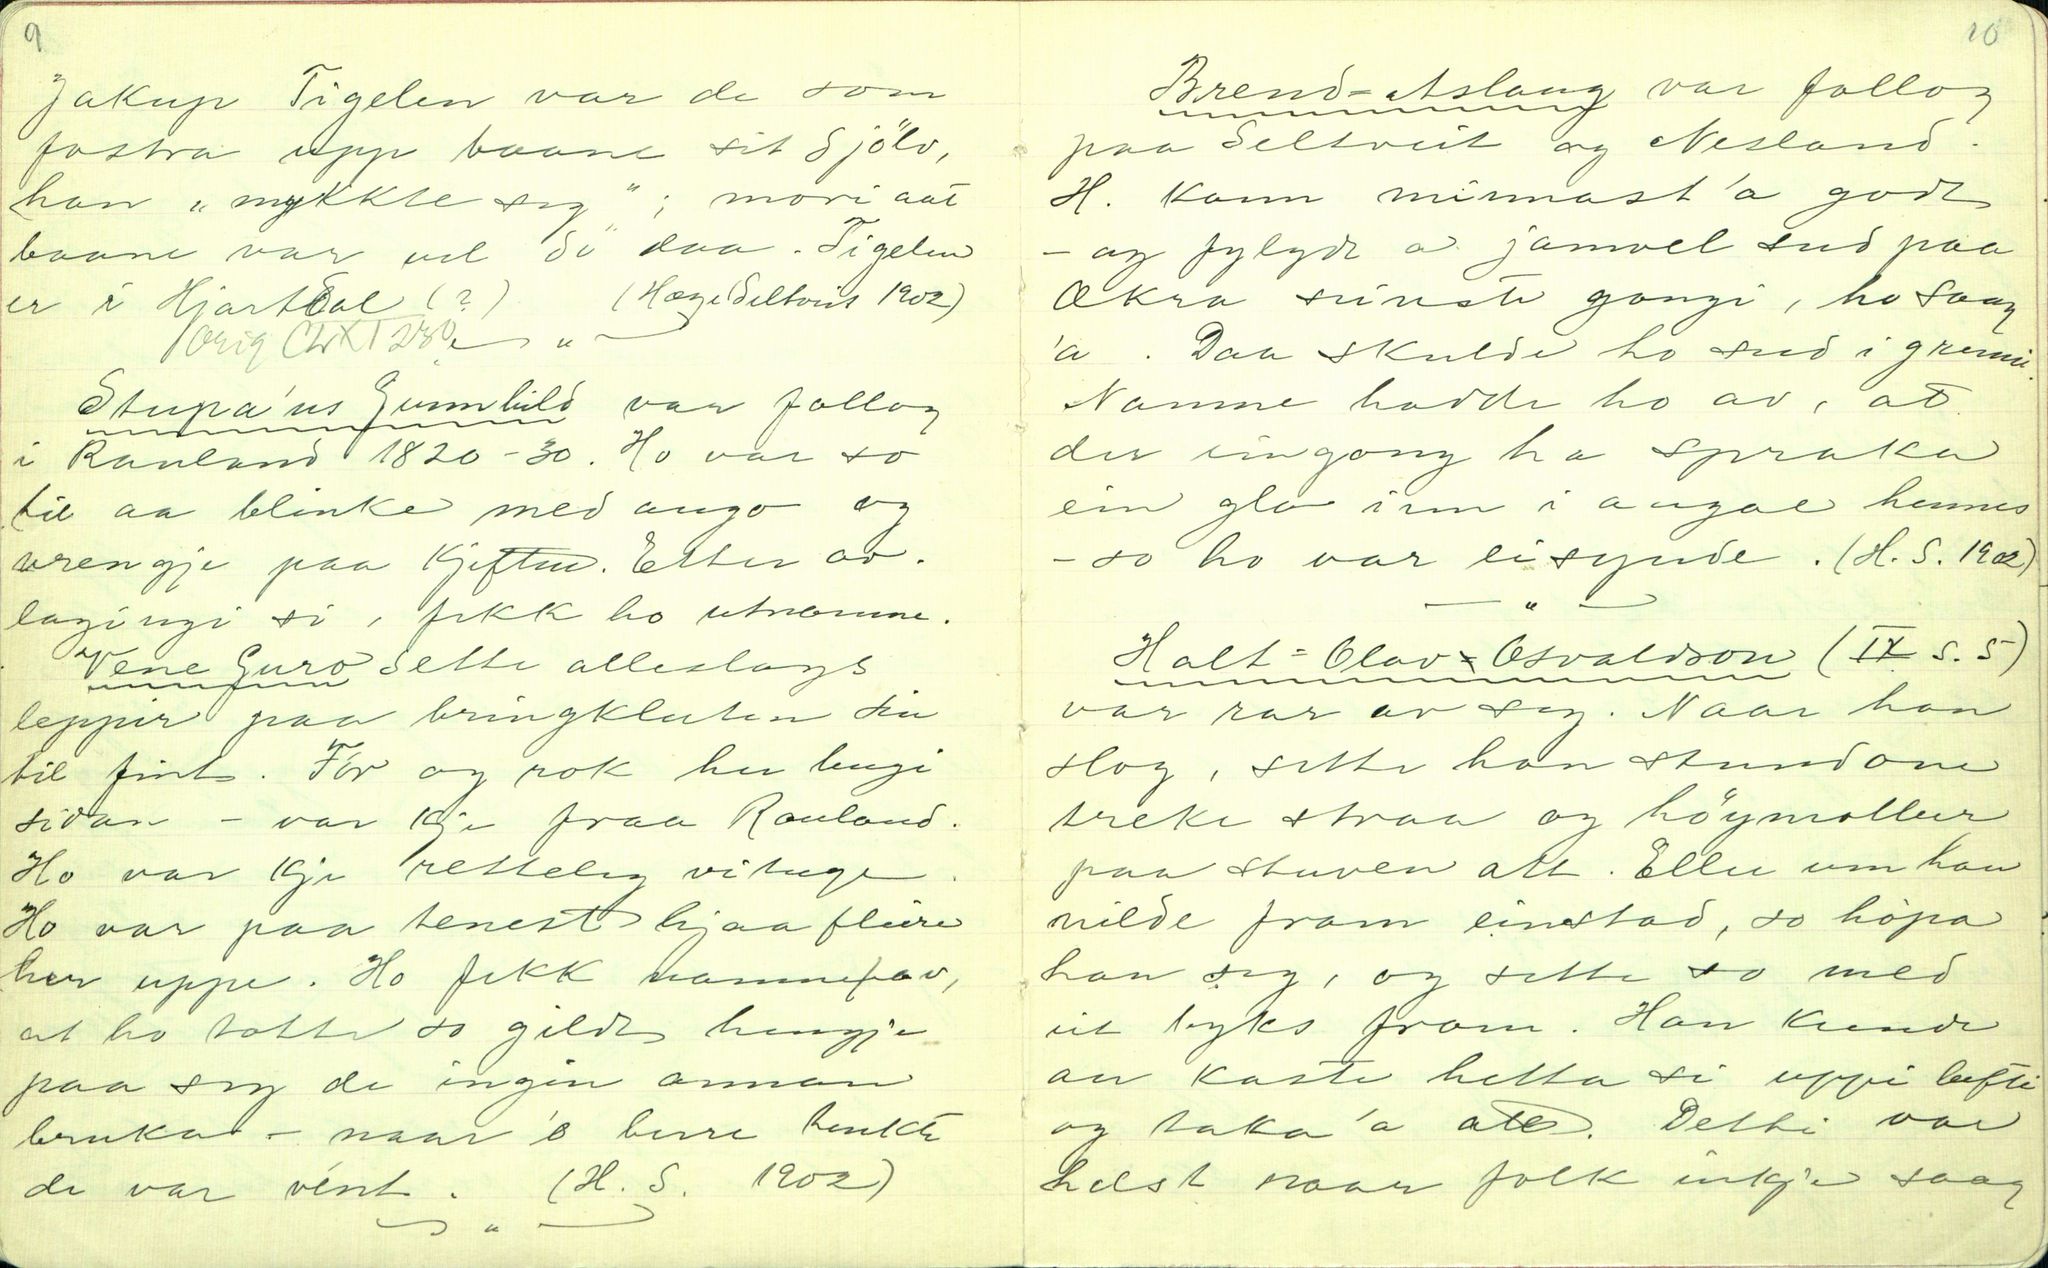 9
Jakup Tigelen var de som
fostra upp baane sit sjölv,
han „mykkte seg"; mori aat
baane var vel dö daa. Tigelen
er i Hjartdal (?) (Hæge Seltveit 1902)
Orig
— „ —
Stupa'us Gunnhild var fallog
i Rauland 1820-30. Ho var so
til aa blinke med augo og
vrengje paa kjeften. Etter av-
lagingi si, fekk ho utnamne.
Vene Guro sette alleslags
leppir paa bringkluten sin
til fint. För og rok her lengi
sidan - var kje fraa Rauland.
Ho var kje retteleg vituge.
Ho var paa tenest hjaa fleire
her uppe. Ho fekk namne av,
at ho totte so gildt hengje
paa seg de ingin annan
bruka - naar 'o berre tenkte
de var vent. (H. S. 1902)
— „ —
10
Brend-Aslaug var fallog
paa Seltveit og Nesland.
H. kann minnast 'a godt
- og fylgde a jamvel sud paa
Økra sinste gongi, ho saag
'a. Daa skulde ho sud i grenni.
Namne hadde ho av, at
der eingong ha spraka
ein glo inn i augae hennes
- so ho var eisynde. (H. S. 1902)
— „ —
Halt-Olav Osvaldson (IX s. 5)
var rar av seg. Naar han
slog, sette han stundone
treke straa og höymollur
paa stuven att. Elle um han
vilde fram einstad, so hópa
han seg, og sette so med
eit byks fram. Han kunde
au kaste hetta si uppi lufti
og taka 'a att. Detti var
helst naar folk inkje saag